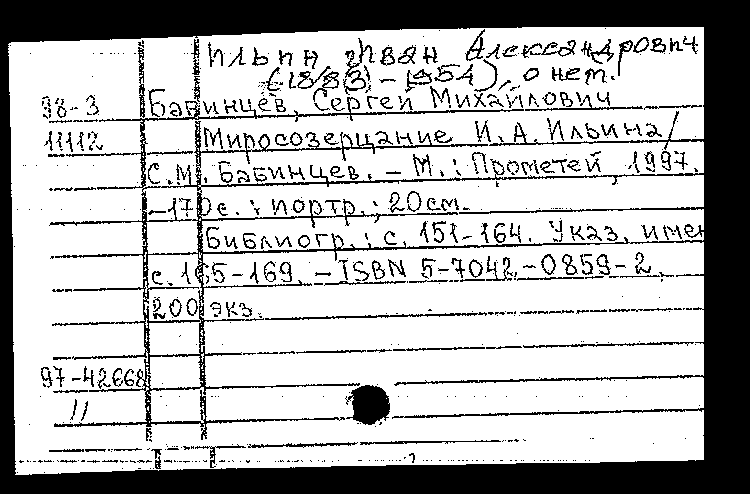 Ильин Иван Александрович
(1883) - 1954), о нем.
98-3 Бабинцев, Сергей Михайлович
11112 Миросозерцание И. А. Ильина /
С.М. Бабинцев. - М. : Прометей, 1997.
-170с. : портр. ; 20см.
Библиогр.: с. 151-164. Указ. имен
с. 165-169. - ISBN 5-7042-0859-2,
200 экз.
97-42668
11